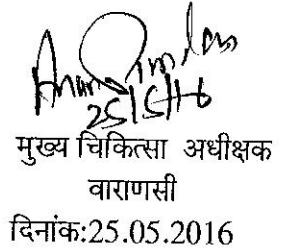 25/5/16
मुख्य चिकित्सा अधीक्षक
वाराणसी
दिनांक:25.05.2016